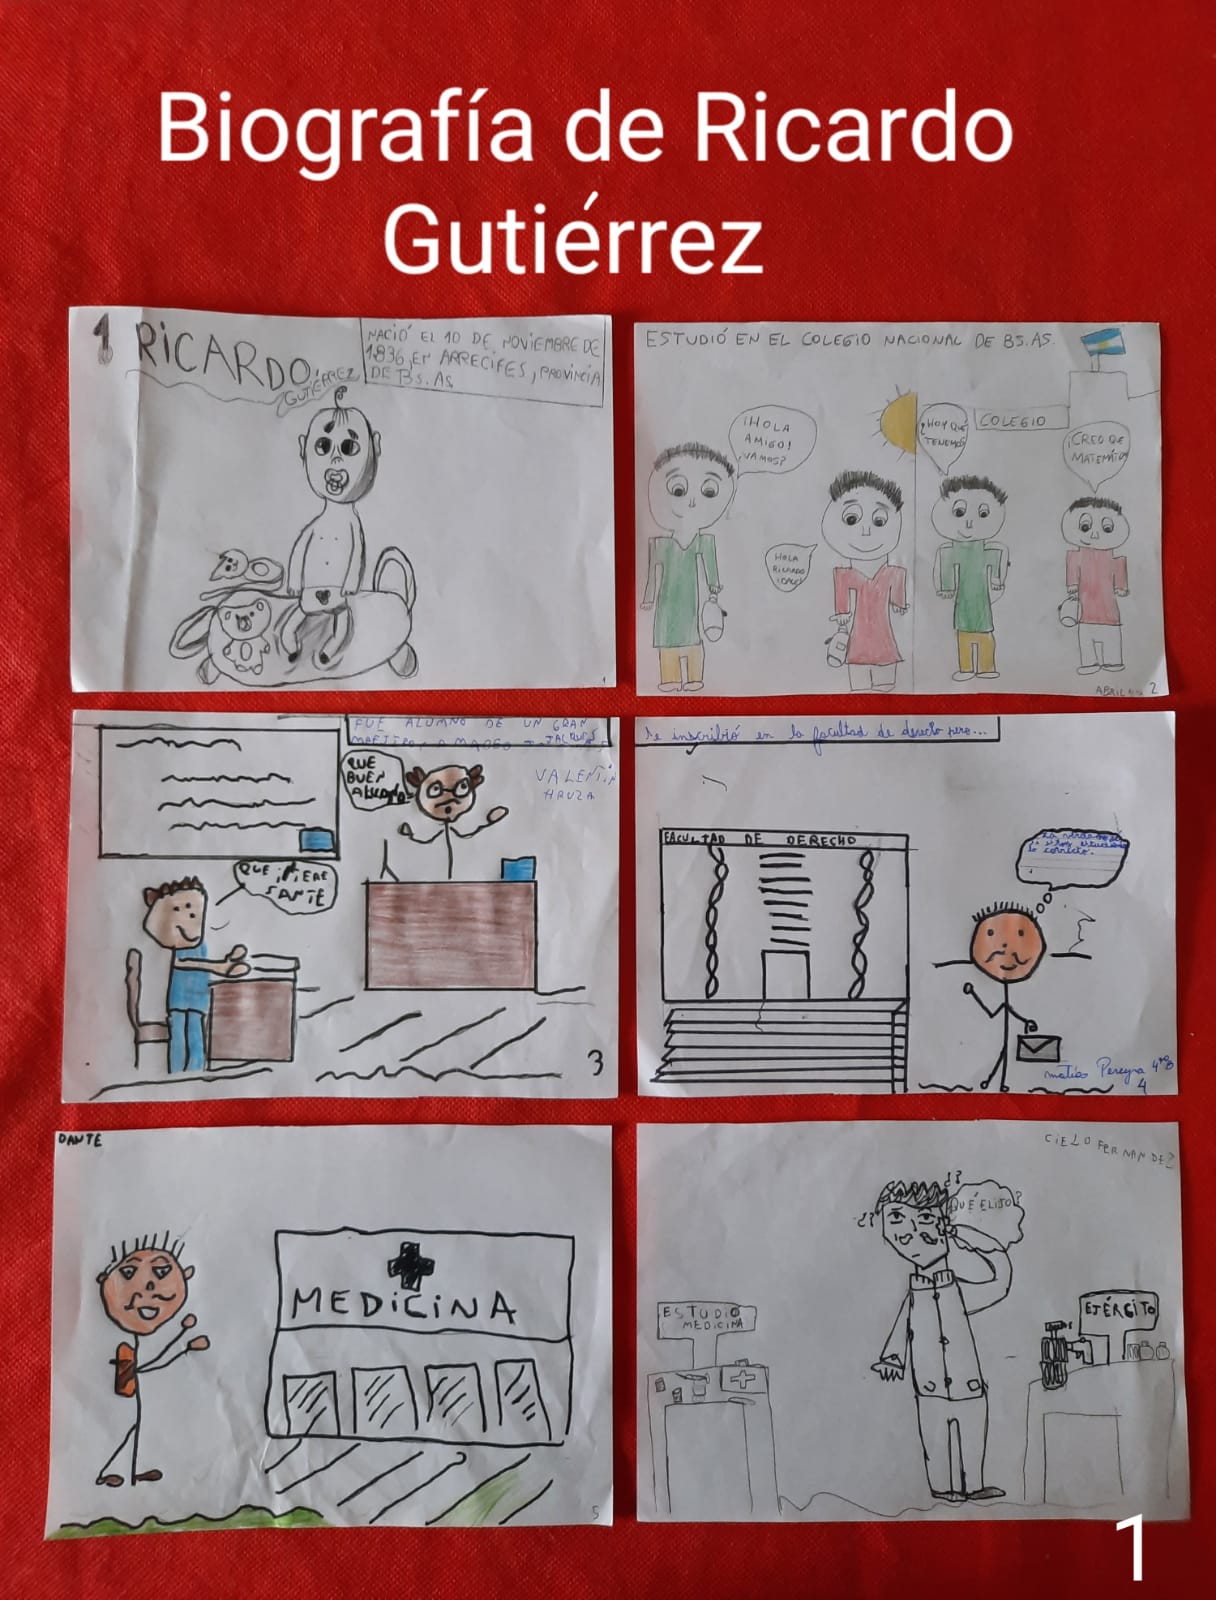 Biografía de Ricardo
Gutiérrez
1 RICARDO
GUTIÉRREZ
NACIÓ EL 10 DE NOVIEMBRE DE
1836, EN ARRECIFES, PROVINCIA
DE BS. AS.
1
ESTUDIÓ EN EL COLEGIO NACIONAL DE BS. AS.
¡HOLA
AMIGO!
¿VAMOS?
HOLA
RICARDO
¡DALE!
COLEGIO
¿HOY QUÉ
TENEMOS?
¡CREO QUE
MATEMÁTICA!
ABRIL
2
FUE ALUMNO DE UN GRAN
JAQUES
VALENTÍN
HRUZA
QUE
BUEN
ALUMNO
QUE INTERE
SANTE
3
Se inscribió en la facultad de derecho pero...
FACULTAD DE DERECHO
lo correcto.
Matías Pereyra 4to B
4
DANTE
MEDICINA
5
CIELO FERNANDEZ
??
¿?
¿QUÉ ELIJO?
ESTUDIO
MEDICINA
EJÉRCITO
1